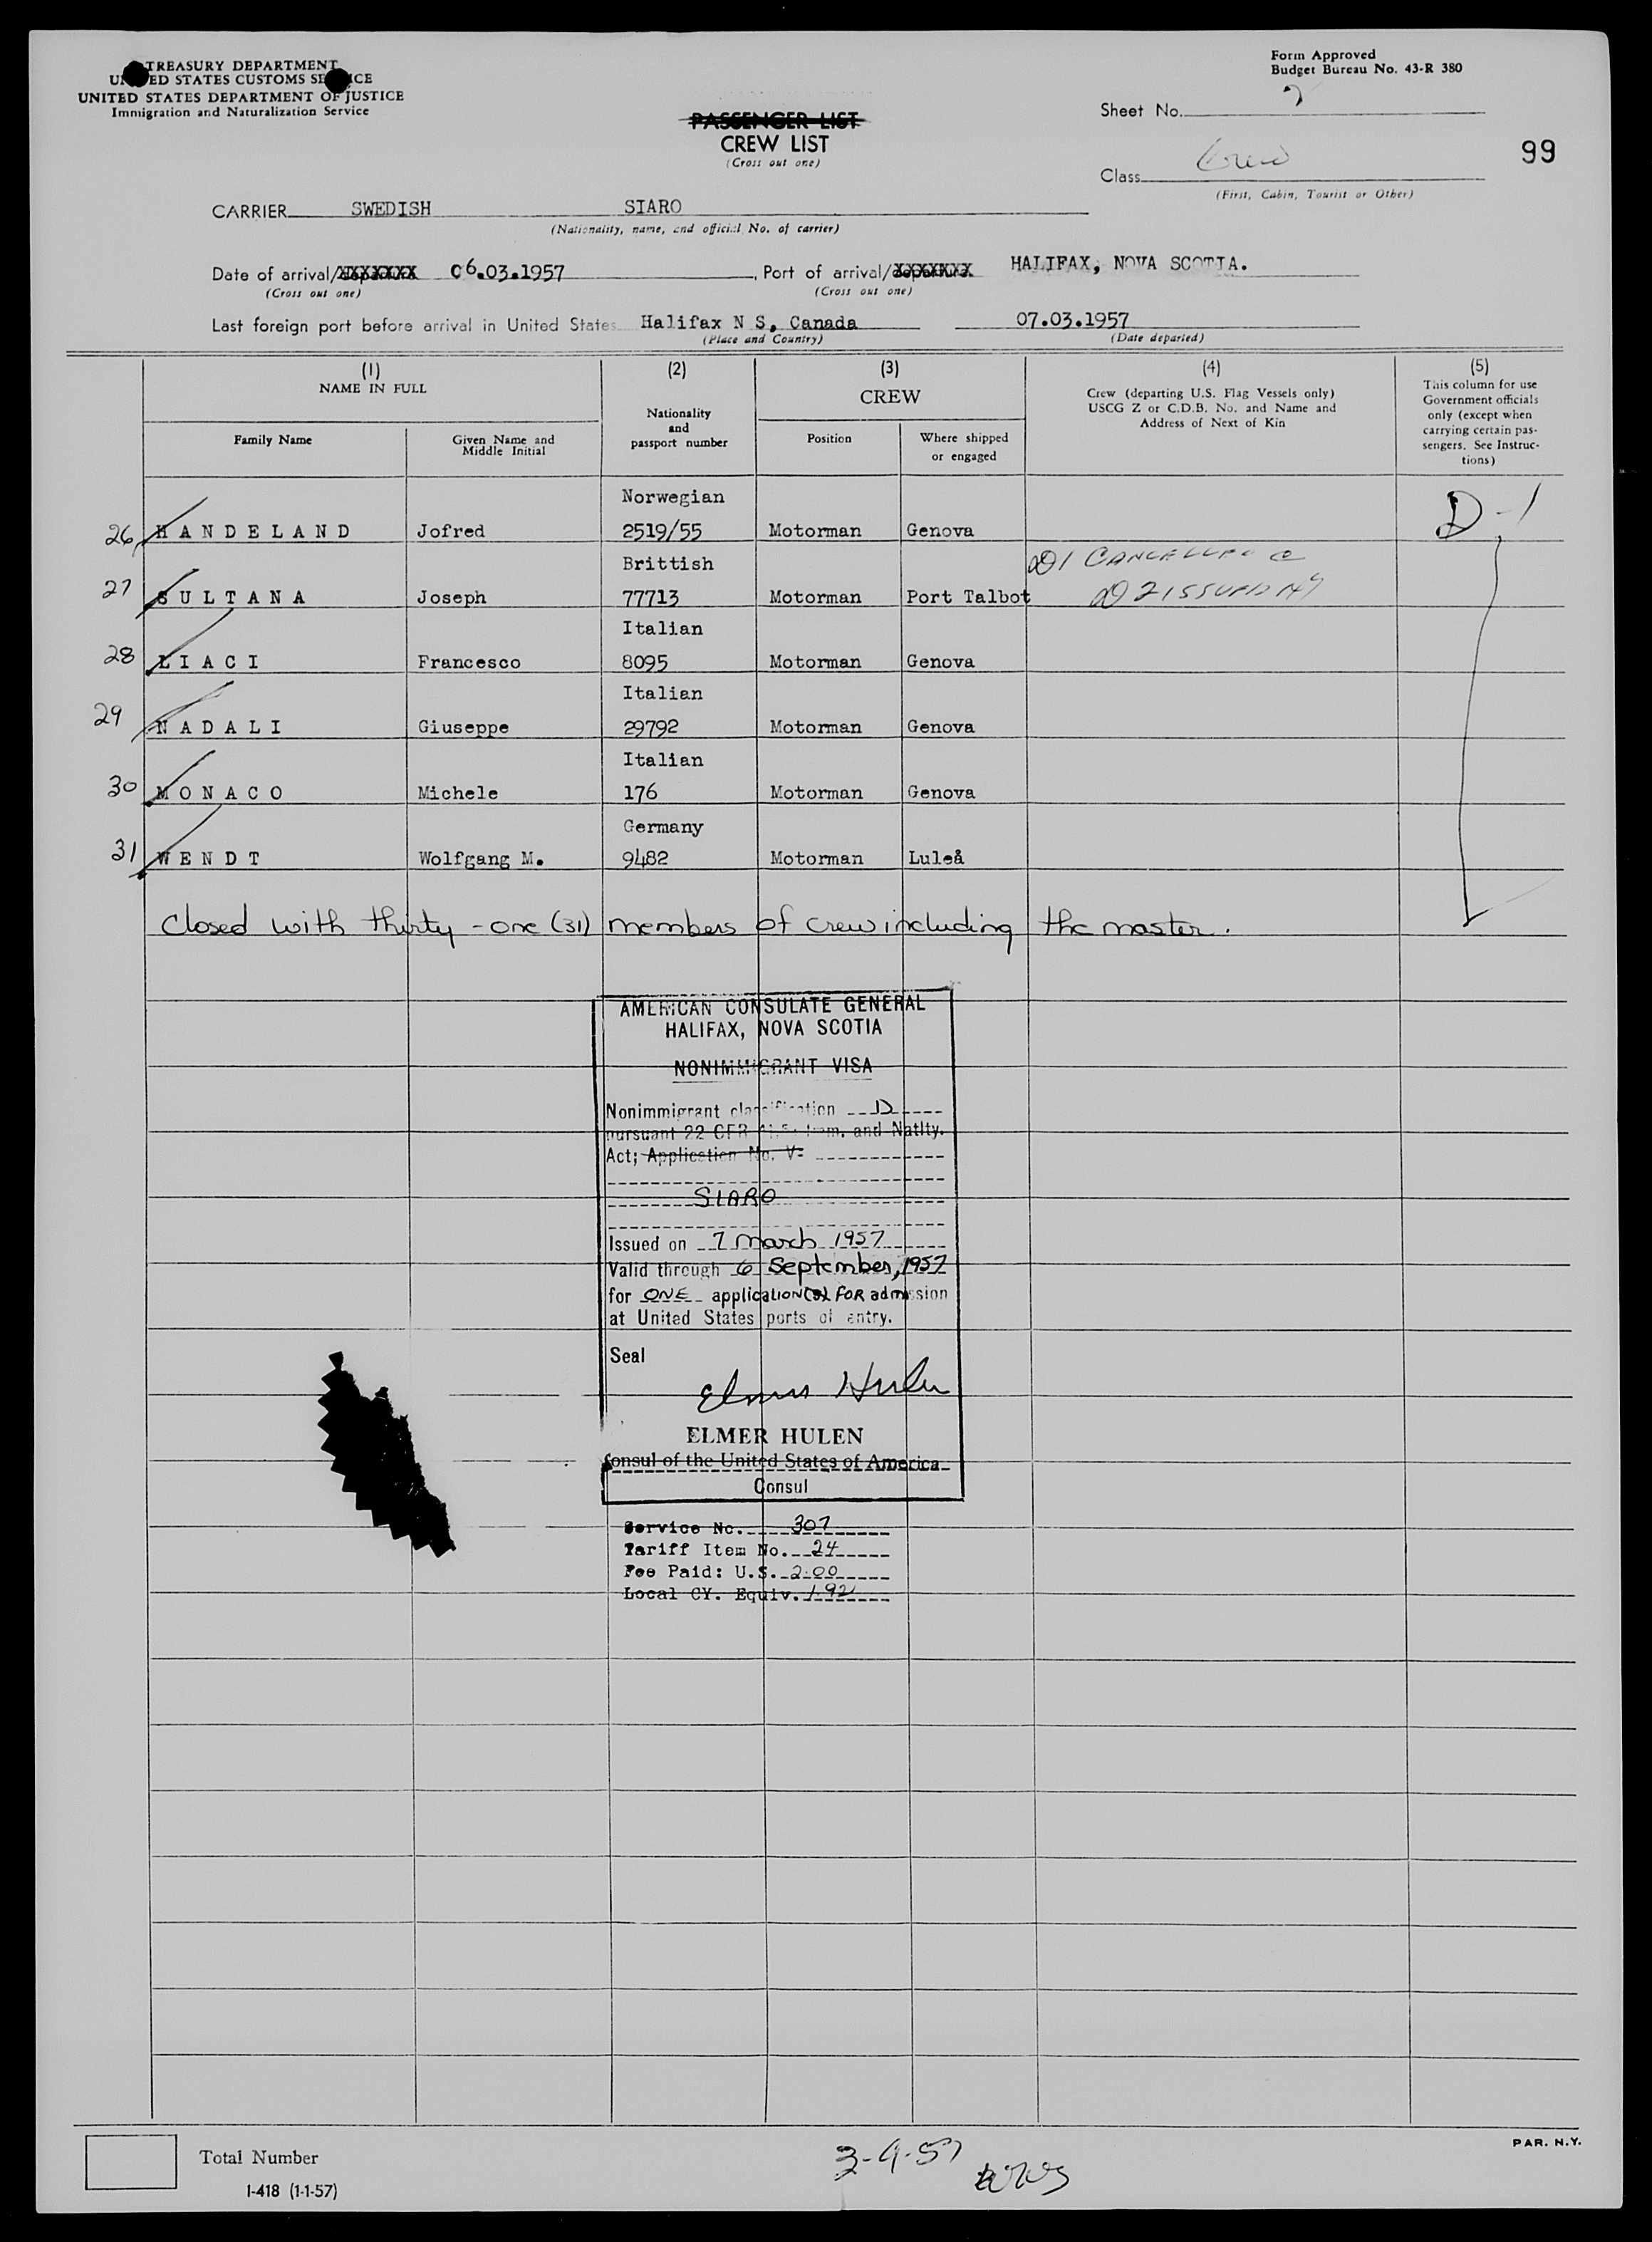 TREASURY DEPARTMENT
UNITED STATES CUSTOMS SERVICE
UNITED STATES DEPARTMENT OF JUSTICE
Immigration and Naturalization Service
Form Approved
Budget Bureau No. 43-R 380
PASSENGER LIST
CREW LIST
(Cross out one)
Sheet No.
Class Crew
(First, Cabin, Tourist or Other)
99
CARRIER SWEDISH SIARO
(Nationality, name, and official No. of carrier)
Date of arrival/departure 06.03.1957, Port of arrival/departure HALIFAX, NOVA SCOTIA.
(Cross out one) (Cross out one)
Last foreign port before arrival in United States Halifax N S, Canada 07.03.1957
(Place and Country) (Date departed)
(1) (2) (3) (4) (5)
NAME IN FULL
Family Name
Given Name and Middle Initial
Nationality and passport number
CREW
Position
Where shipped or engaged
Crew (departing U.S. Flag Vessels only)
USCG Z or C.D.B. No. and Name and
Address of Next of Kin
This column for use
Government officials
only (except when
carrying certain pas-
sengers. See Instruc-
tions)
Norwegian
26 HANDELAND Jofred 2519/55 Motorman Genova D-1
Brittish D1 CANCELLED
27 SULTANA Joseph 77713 Motorman Port Talbot D2 ISSUED NY
Italian
28 LIACI Francesco 8095 Motorman Genova
Italian
29 NADALI Giuseppe 29792 Motorman Genova
Italian
30 MONACO Michele 176 Motorman Genova
Germany
31 WENDT Wolfgang M. 9482 Motorman Luleå
Closed with thirty-one (31) members of crew including the master.
AMERICAN CONSULATE GENERAL
HALIFAX, NOVA SCOTIA
NONIMMIGRANT VISA
Nonimmigrant classification D
pursuant 22 CFR Imm. and Natlty.
Act; Application No. V-
SIARO
Issued on 7 March 1957
Valid through 6 September, 1957
for ONE application(s) FOR admission
at United States ports of entry.
Seal
Elmer Hulen
ELMER HULEN
Consul of the United States of America
Consul
Service No. 307
Tariff Item No. 24
Fee Paid: U.S. 2.00
Local CY. Equiv. 1.92
Total Number
I-418 (1-1-57)
3-9-57
PAR. N.Y.